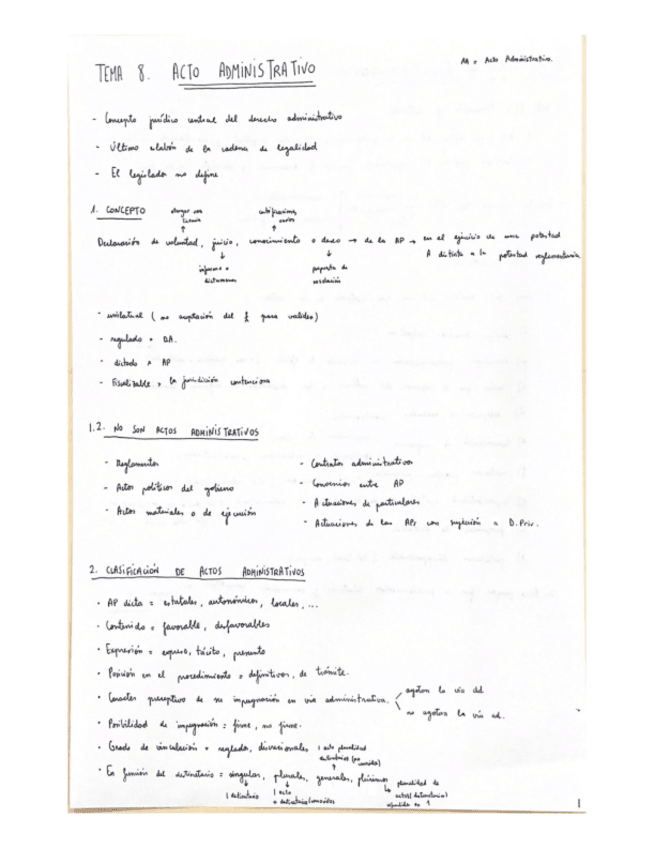 AA = Acto Administrativo.
TEMA 8. ACTO ADMINISTRATIVO
- Concepto jurídico central del derecho administrativo
- Último eslabón de la cadena de legalidad
- El legislador no define
1. CONCEPTO
otorgar una licencia
certificaciones, varios
Declaración de voluntad, juicio, conocimiento o deseo → de la AP → en el ejercicio de una potestad
A distinta a la potestad reglamentaria
informes o dictámenes
propuesta de resolución
- unilateral ( no aceptación del para validez)
- regulado × DA.
- dictado × AP
- Fiscalizable × la jurisdicción contenciosa
1.2. NO SON ACTOS ADMINISTRATIVOS
- Reglamentos
- Actos políticos del gobierno
- Actos materiales o de ejecución
- Contratos administrativos
- Convenios entre AP
- Actuaciones de particulares
- Actuaciones de las APs con sujeción a D.Priv.
2. CLASIFICACIÓN DE ACTOS ADMINISTRATIVOS
· AP dicta = estatales, autonómicos, locales, ...
· Contenido = favorable, desfavorables
· Expresión = expreso, tácito, presunto
· Posición en el procedimiento = definitivos, de trámite.
· Carácter preceptivo de su impugnación en vía administrativa.
agotan la vía ad
no agotan la vía ad.
· Posibilidad de impugnación = firme, no firme.
· Grado de vinculación = reglado, discrecionales
1 acto pluralidad
· En función del destinatario = singular, plurales, generales, plúrimos
1 destinatario
1 acto
+ destinatarios conocidos
pluralidad de
actos (destinatarios)
en 1
1